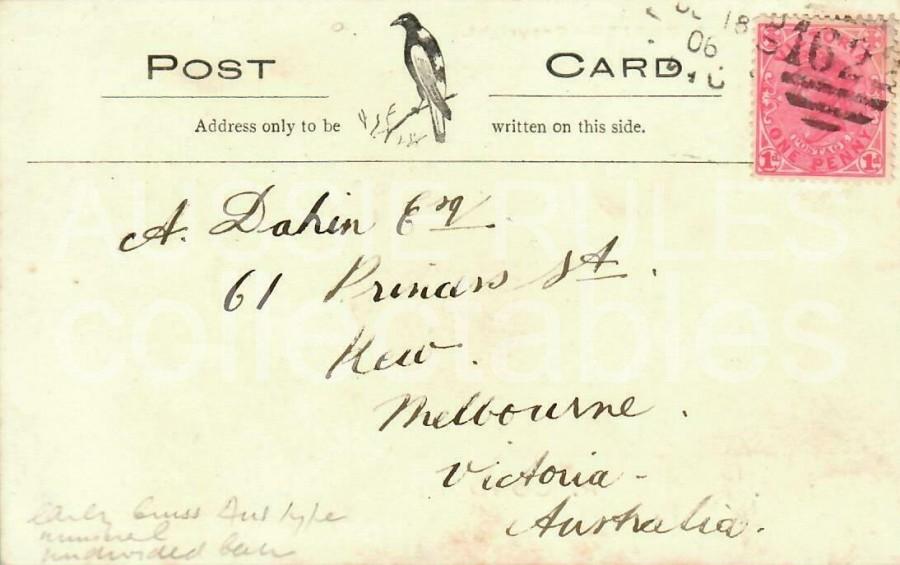 POST CARD
Address only to be written on this side.
18
06
162
ONE PENNY
1d 1d
A. Dahin Esq.
61 Princess St.
Kew.
Melbourne.
Victoria -
Australia.
AUSSIE RULES
collectables
early
undivided back